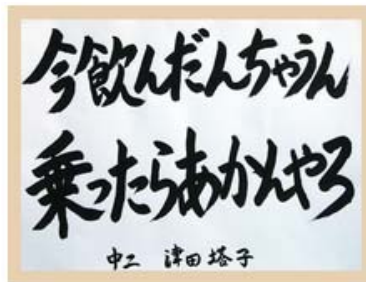 今飲んだんちゃうん
乗ったらあかんやろ
中二 津田塔子